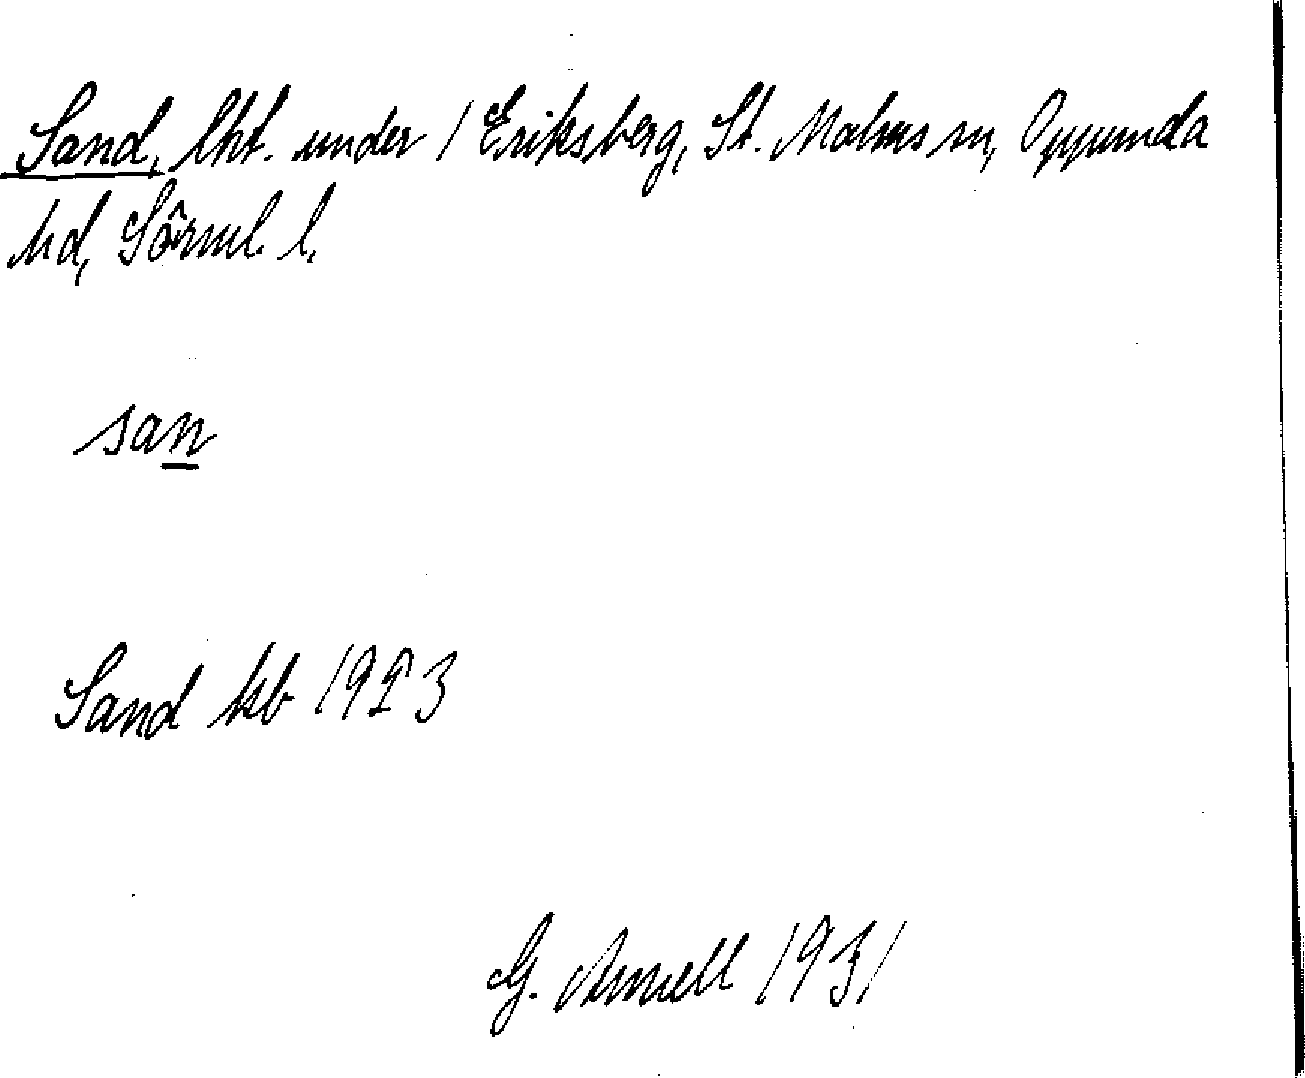 Sand, lht. under 1 Eriksberg, St. Malms sn, Oppunda
hd, Sörml. l.
san
Sand kb 1923
G. Arnell 1931